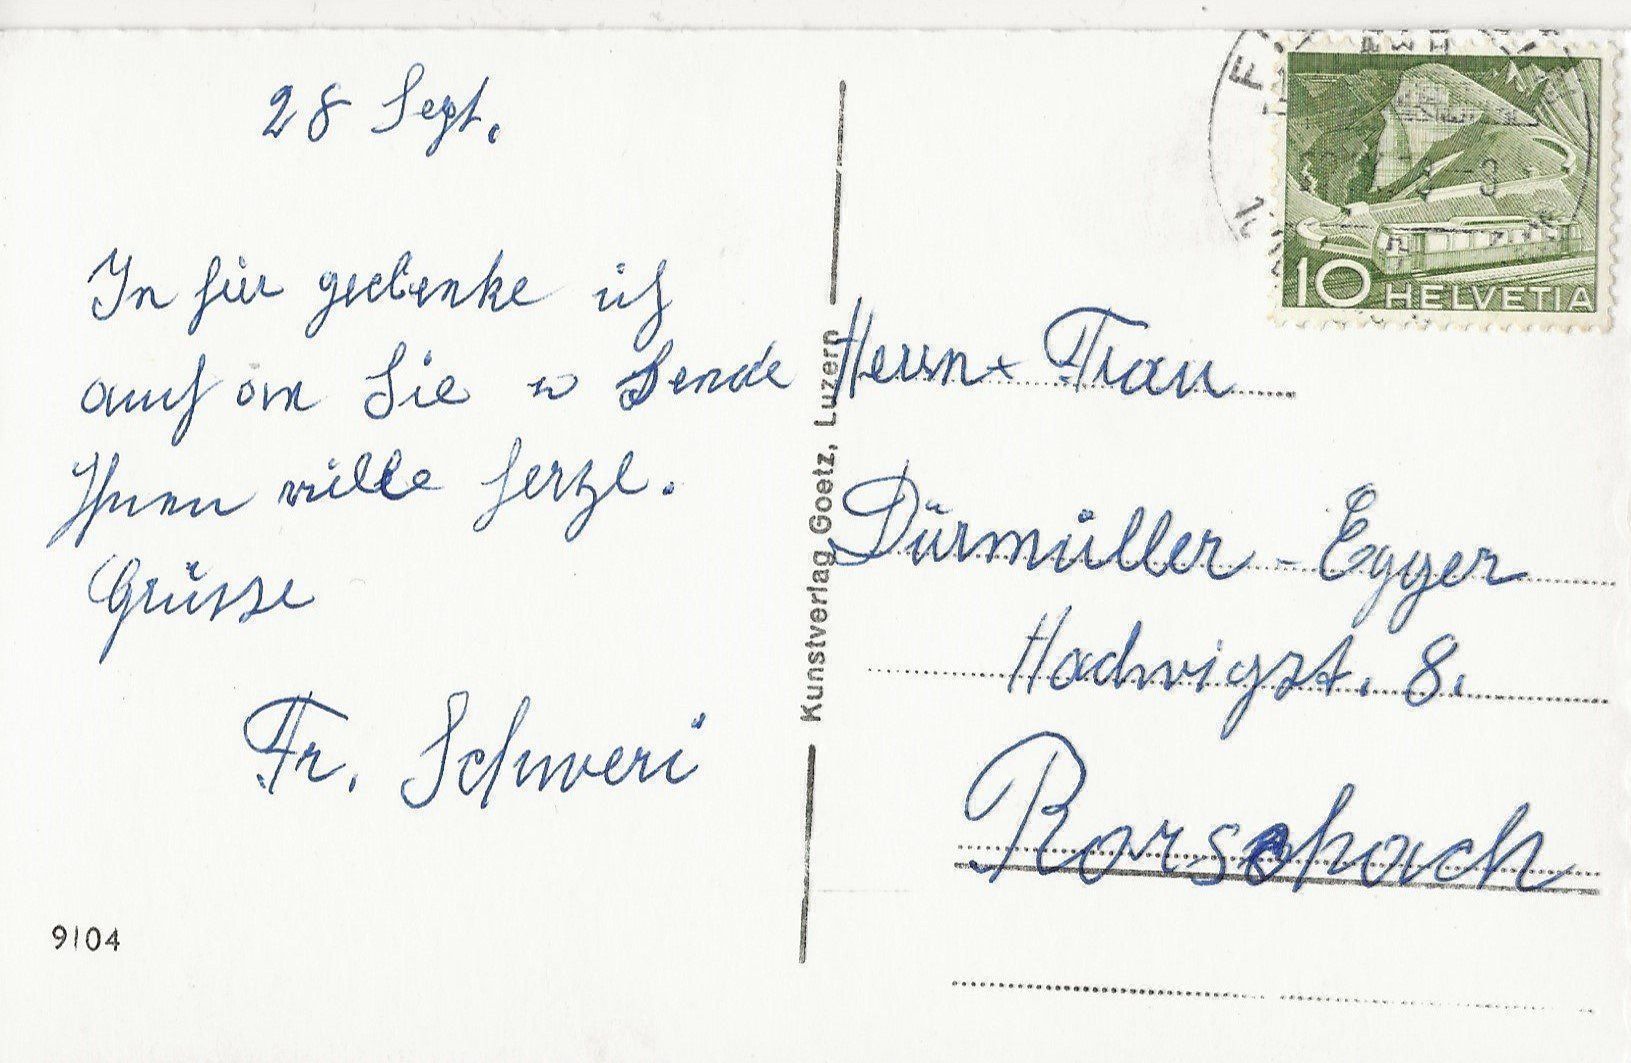 28 Sept.
In für gedenke ich
auch an Sie u Sende
Ihnen viele herzl.
Grüsse
Fr. Schweri
9104
Kunstverlag Goetz, Luzern
10 HELVETIA
Herrn + Frau
Dürmüller - Egger
Hadwigst. 8.
Rorschach